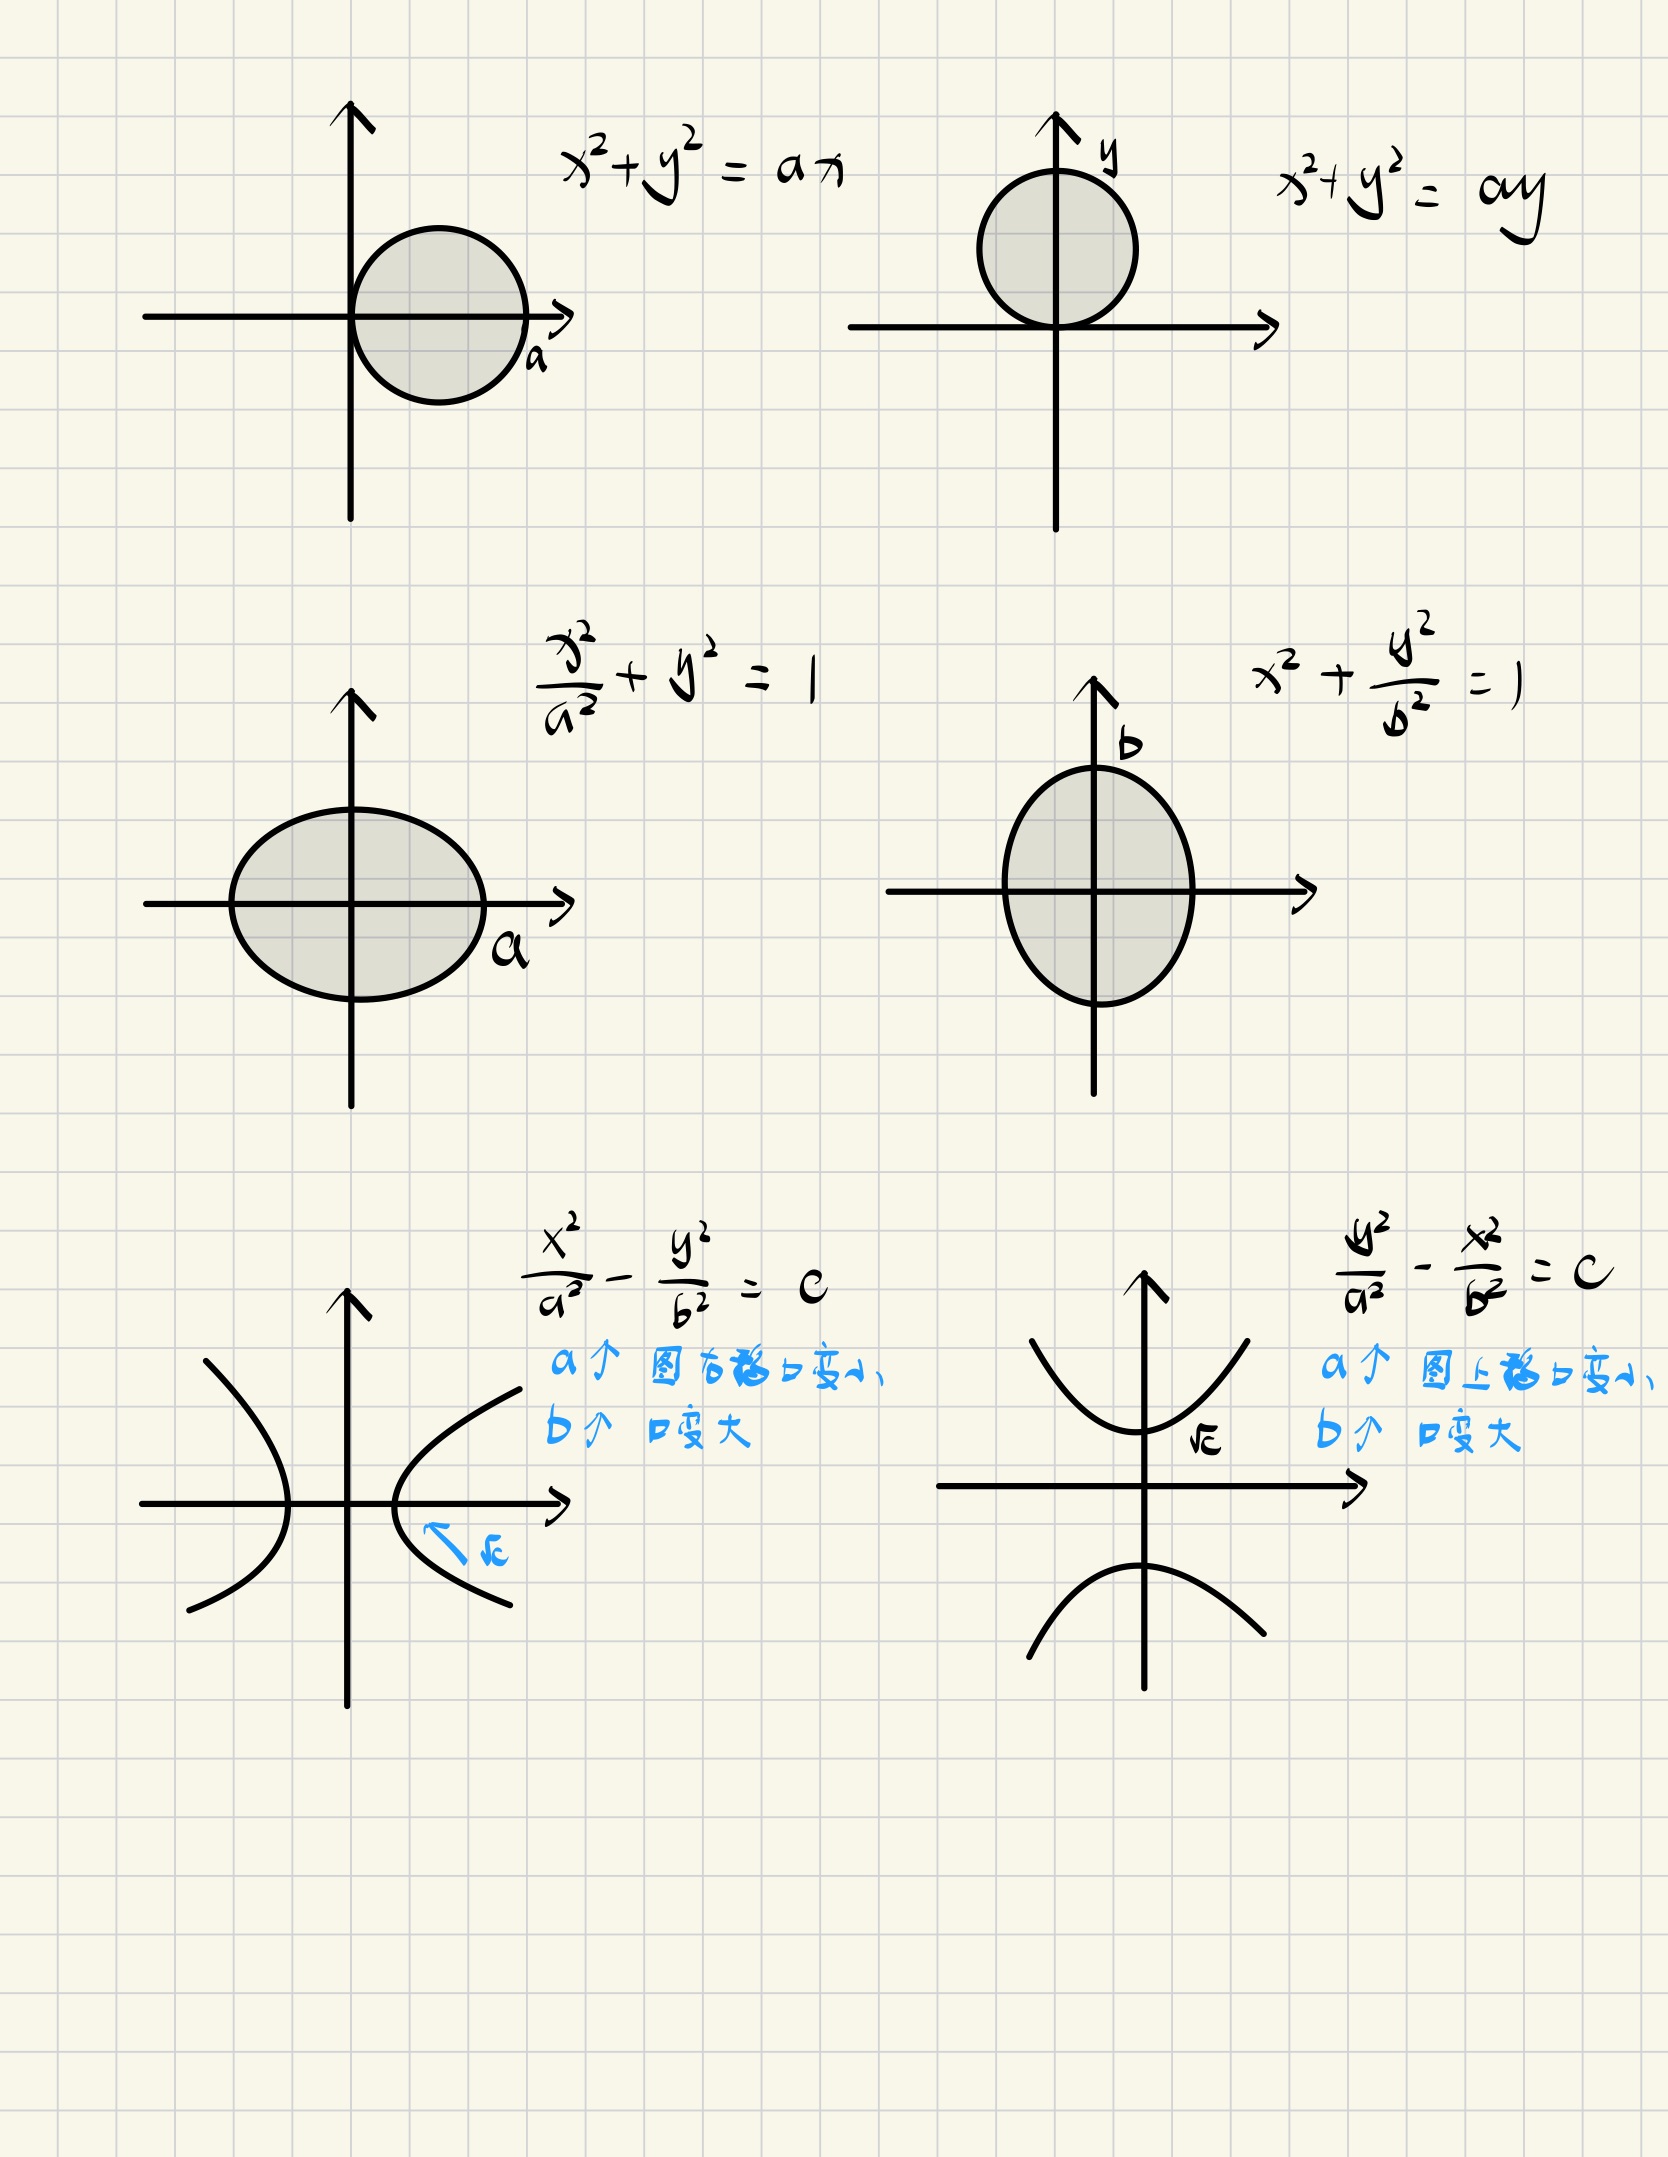 x² + y² = ax
a
y
x² + y² = ay
x²/a² + y² = 1
a
x² + y²/b² = 1
b
x²/a² - y²/b² = c
a↑ 图右移口变小
b↑ 口变大
√c
y²/a² - x²/b² = c
a↑ 图上移口变小
b↑ 口变大
√c